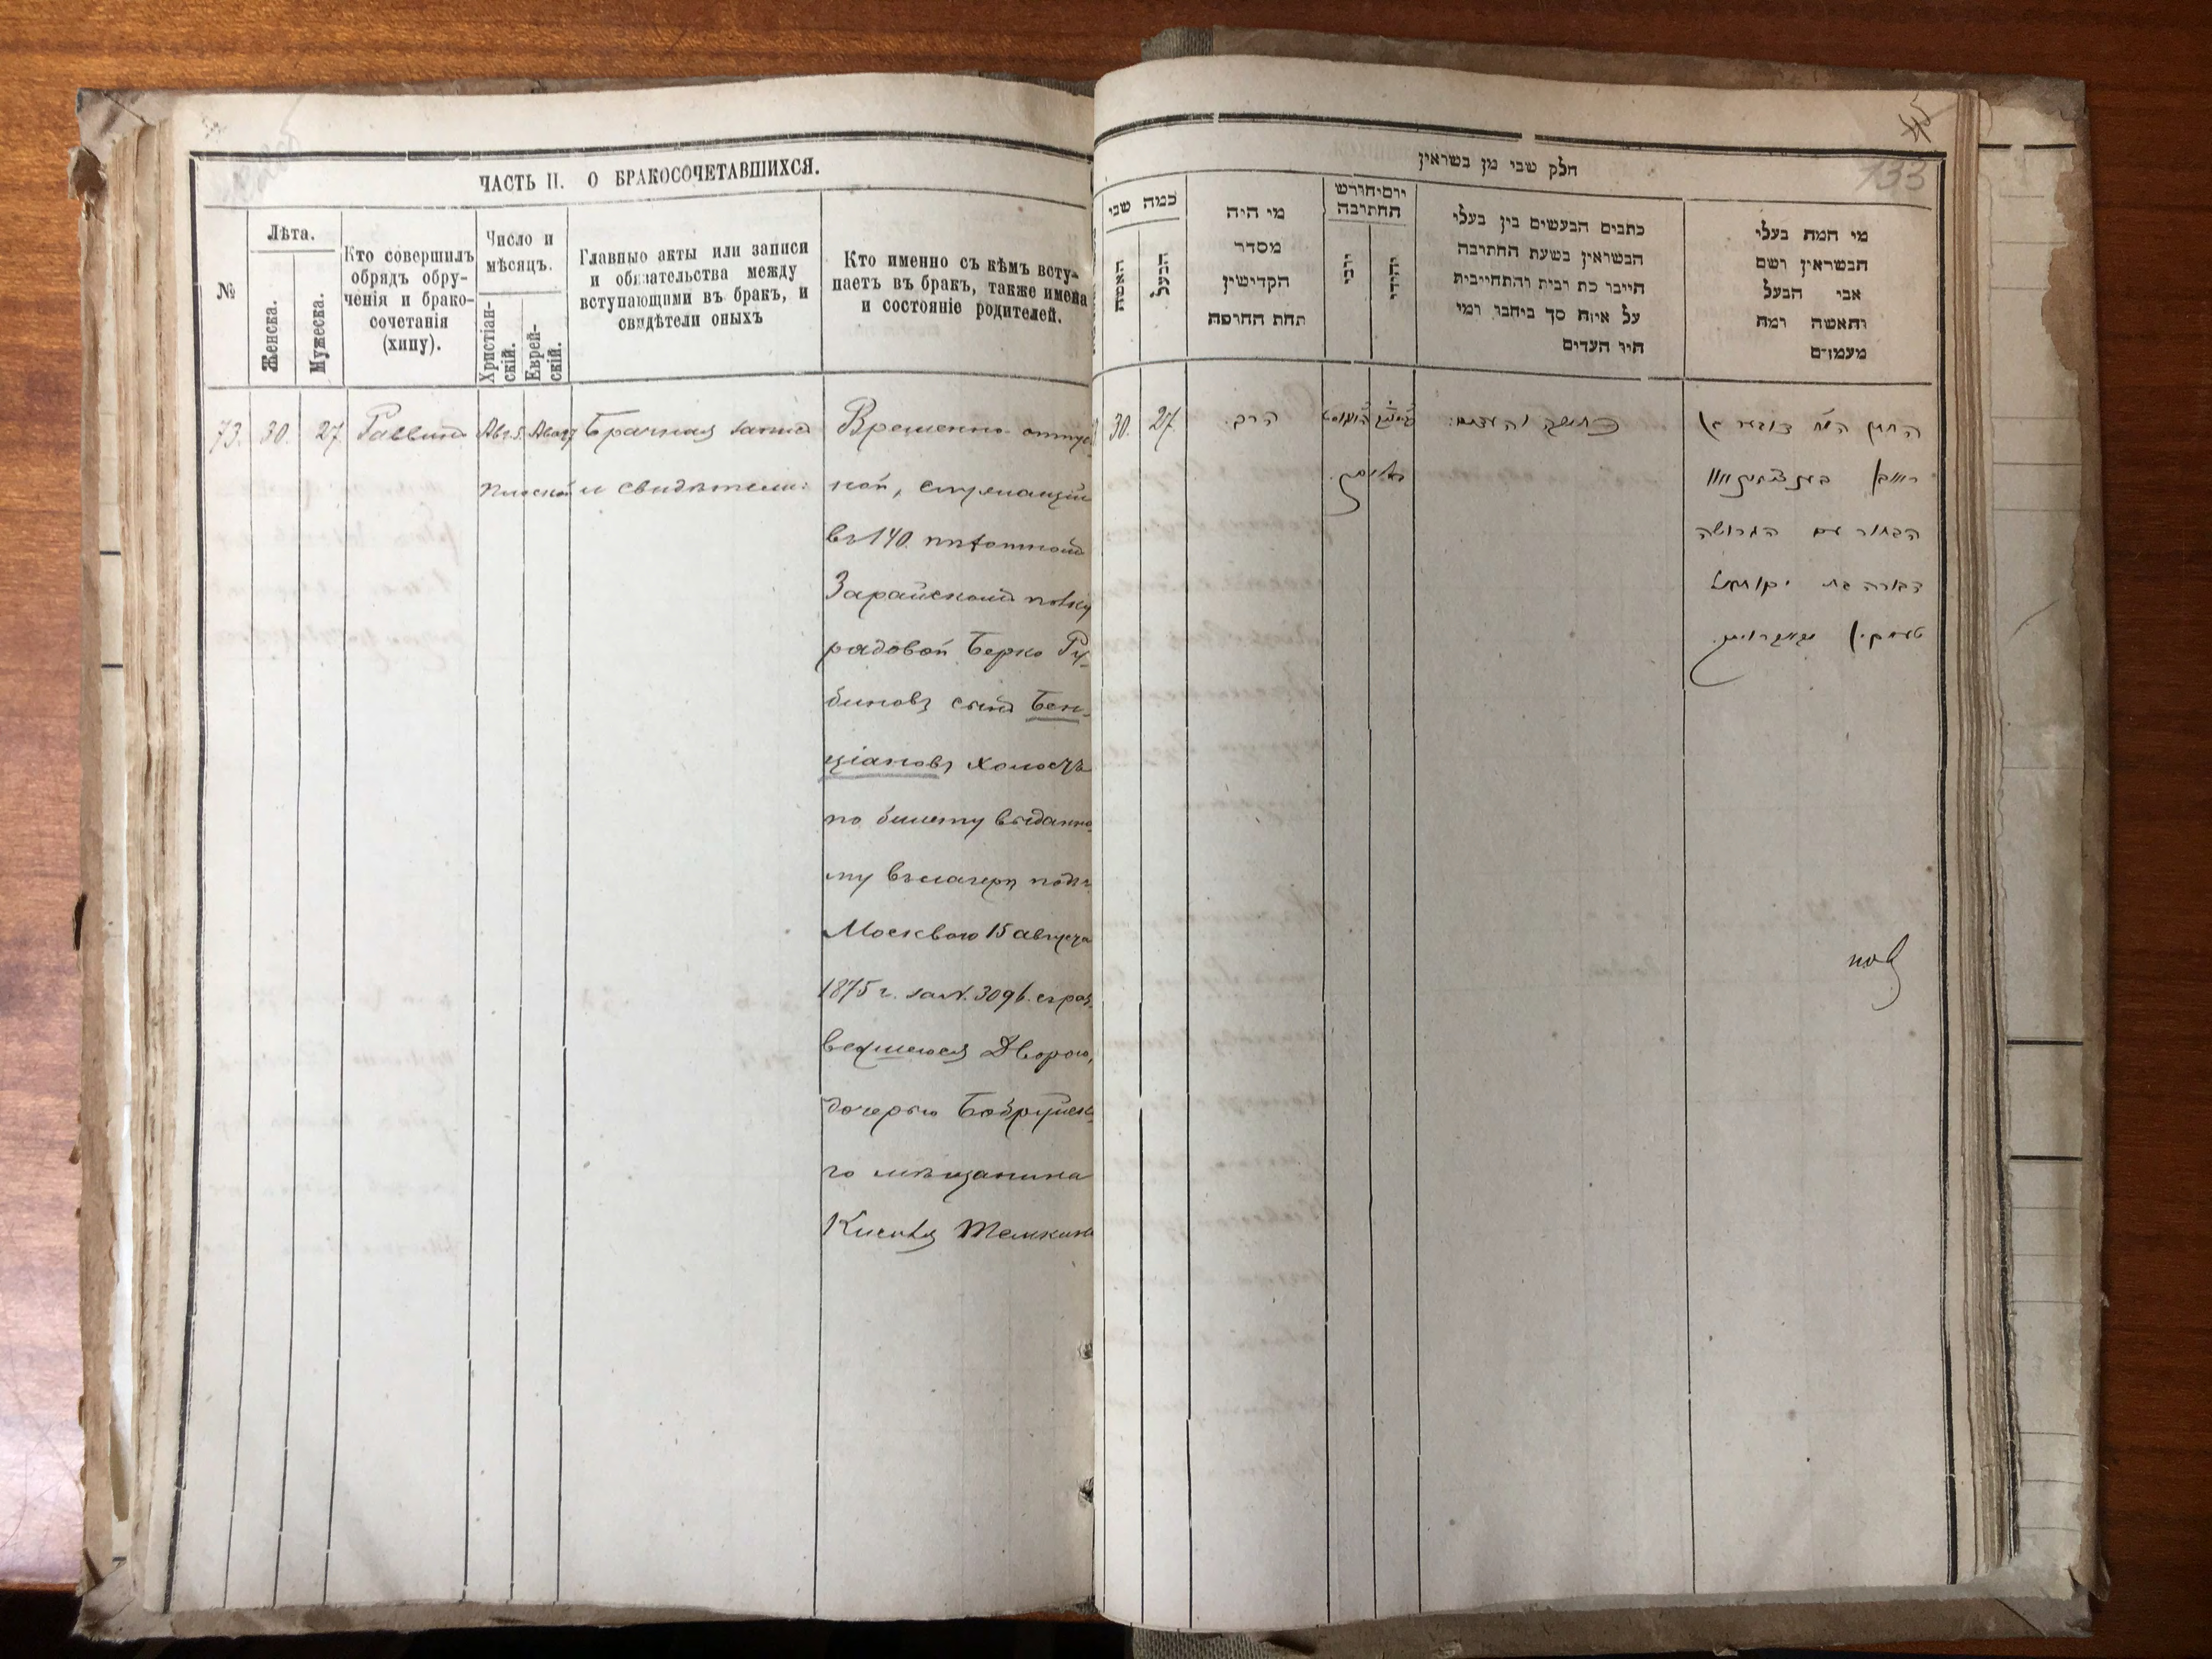 ЧАСТЬ II. О БРАКОСОЧЕТАВШИХСЯ.
№
Лѣта.
Женска.
Мужеска.
Кто совершилъ
обрядъ обру-
ченія и брако-
сочетанія
(хипу).
Число и
мѣсяцъ.
Христіан-
скій.
Еврей-
скій.
Главные акты или записи
и обязательства между
вступающими въ бракъ, и
свидѣтели оныхъ
Кто именно съ кѣмъ всту-
паетъ въ бракъ, также имена
и состояніе родителей.
73. 30. 27. Раввинъ Авг. 5. Брачная запись
и свидѣтели:
Временно отпус
ной, служащій
въ 140. пѣхотномъ
Зарайскомъ полку
рядовой Берко Ру-
биновъ сынъ Бен-
ціановъ холостъ
по билету выданно
му въ лагерѣ подъ
Москвою 15 августа
1875 г. за N. 3096. съ раз
ведшеюся Дворою,
дочерью Бобруйск
го мѣщанина
Кисиля Темкина
133
חלק שני מן הנשואין
כמה שני
האשה
הבעל
מי היה
מסדר
הקדישין
תחת החופה
יום וחודש
החתונה
יוני
יהודי
כתבים הנעשים בין בעלי
הנשואין בשעת החתונה
היינו כת ובית והתחייבית
על איזה סך ביניהו ומי
היו העדים
מי המה בעלי
הנשואין ושם
אבי הבעל
והאשה ומה
מעמדם
30. 27. הרב.
כתובה והעדים:
רובין
הבחור עם הגרושה
דבורה בת יקותיאל
טעמקין